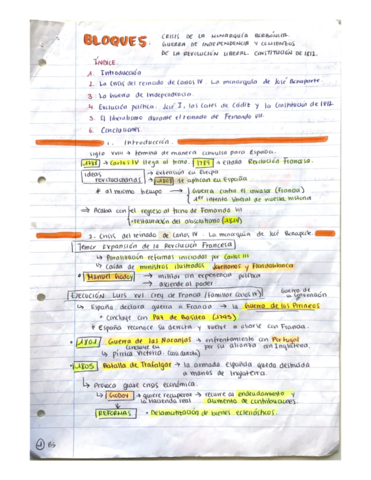 BLOQUE 5. CRISIS DE LA MONARQUÍA BORBÓNICA.
GUERRA DE INDEPENDENCIA Y COMIENZOS
DE LA REVOLUCIÓN LIBERAL. CONSTITUCIÓN DE 1812.
ÍNDICE.
1. Introducción
2. La crisis del reinado de Carlos IV. La monarquía de José Bonaparte.
3. La Guerra de Independencia.
4. Evolución política: José I, las Cortes de Cádiz y la Constitución de 1812.
5. El liberalismo durante el reinado de Fernando VII.
6. Conclusiones
1. Introducción.
Siglo XVIII → termina de manera convulsa para España.
1788 → Carlos IV llega al trono. 1789 → estalla Revolución Francesa.
Ideas revolucionarias → extensión en Europa
→ 1808 se aplican en España
* al mismo tiempo → Guerra contra el invasor (Francia)
1er intento liberal de nuestra historia
⇒ Acaba con el regreso al trono de Fernando VII
restauración del absolutismo (1814)
2. Crisis del reinado de Carlos IV. La monarquía de José Bonaparte.
Temor expansión de la Revolución Francesa
↳ Paralización reformas iniciadas por Carlos III
↳ Caída de ministros ilustrados Jovellanos y Floridablanca
Manuel Godoy → militar sin experiencia política
→ asciende al poder
EJECUCIÓN LUIS XVI (rey de Francia / familiar Carlos IV)
↳ España declara guerra a Francia → la Guerra de los Pirineos
Guerra de la Convención
* Concluye con Paz de Basilea (1795)
* España reconoce su derrota y vuelve a aliarse con Francia.
• 1801 Guerra de las Naranjas → enfrentamiento con Portugal
por su alianza con Inglaterra.
Concluye en
↳ pírrica victoria
• 1805 Batalla de Trafalgar → la armada española queda destruida
a manos de Inglaterra.
↳ Provoca grave crisis económica.
↳ Godoy → quiere recuperar la Hacienda real → recurre al endeudamiento y
aumento de contribuciones.
REFORMAS → • Desamortización de bienes eclesiásticos.
1 B5